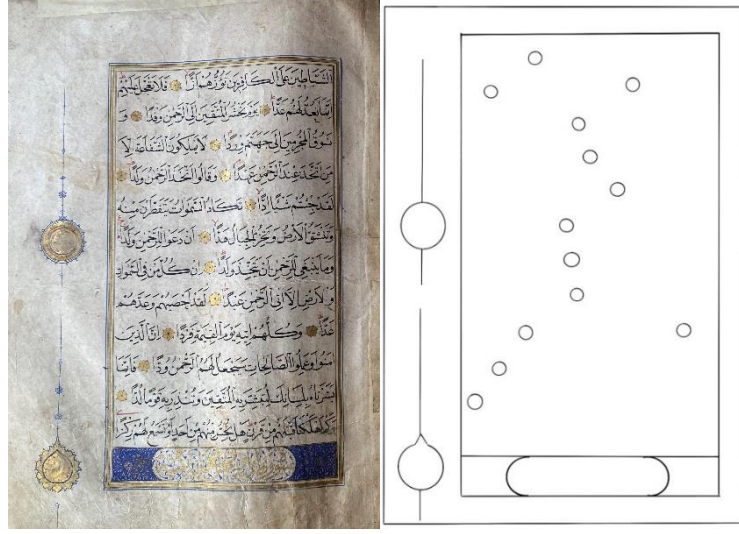 الشَّيَاطِينَ عَلَى الْكَافِرِينَ تَؤُزُّهُمْ أَزًّا فَلَا تَعْجَلْ عَلَيْهِمْ
إِنَّمَا نَعُدُّ لَهُمْ عَدًّا يَوْمَ نَحْشُرُ الْمُتَّقِينَ إِلَى الرَّحْمٰنِ وَفْدًا وَ
نَسُوقُ الْمُجْرِمِينَ إِلَى جَهَنَّمَ وِرْدًا لَا يَمْلِكُونَ الشَّفَاعَةَ إِلَّا
مَنِ اتَّخَذَ عِنْدَ الرَّحْمٰنِ عَهْدًا وَقَالُوا اتَّخَذَ الرَّحْمٰنُ وَلَدًا
لَقَدْ جِئْتُمْ شَيْئًا إِدًّا تَكَادُ السَّمٰوَاتُ يَتَفَطَّرْنَ مِنْهُ
وَتَنْشَقُّ الْأَرْضُ وَتَخِرُّ الْجِبَالُ هَدًّا أَنْ دَعَوْا لِلرَّحْمٰنِ وَلَدًا
وَمَا يَنْبَغِي لِلرَّحْمٰنِ أَنْ يَتَّخِذَ وَلَدًا إِنْ كُلُّ مَنْ فِي السَّمٰوَاتِ
وَالْأَرْضِ إِلَّا آتِي الرَّحْمٰنِ عَبْدًا لَقَدْ أَحْصٰيهُمْ وَعَدَّهُمْ
عَدًّا وَكُلُّهُمْ آتِيهِ يَوْمَ الْقِيٰمَةِ فَرْدًا إِنَّ الَّذِينَ
آمَنُوا وَعَمِلُوا الصَّالِحَاتِ سَيَجْعَلُ لَهُمُ الرَّحْمٰنُ وُدًّا فَإِنَّمَا
يَسَّرْنَاهُ بِلِسَانِكَ لِتُبَشِّرَ بِهِ الْمُتَّقِينَ وَتُنْذِرَ بِهِ قَوْمًا لُدًّا
وَكَمْ أَهْلَكْنَا قَبْلَهُمْ مِنْ قَرْنٍ هَلْ تُحِسُّ مِنْهُمْ مِنْ أَحَدٍ أَوْ تَسْمَعُ لَهُمْ رِكْزًا